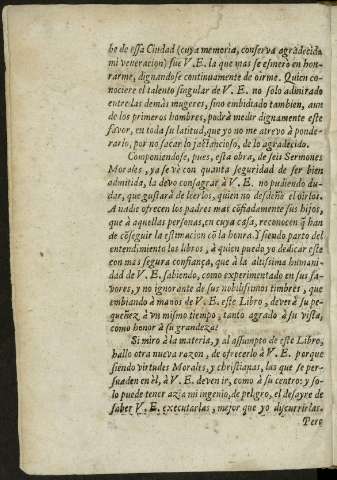 be de essa Ciudad (cuya memoria, conserva agradecida
mi veneracion) fue V. E. la que mas se esmerò en hon-
rarme, dignandose continuamente de oirme. Quien co-
nociere el talento singular de V. E. no solo admirado
entre las demàs mugeres, sino embidiado tambien, aun
de los primeros hombres, podrà medir dignamente este
favor, en toda su latitud, que yo no me atrevo à ponde-
rarlo, por no sacar lo jactancioso, de lo agradecido.
Componiendose, pues, esta obra, de seis Sermones
Morales, ya se vè con quanta seguridad de ser bien
admitida, la devo consagrar à V. E. no pudiendo du-
dar, que gustarà de leerlos, quien no desdeñò el oirlos.
A nadie ofrecen los padres mas cõfiadamente sus hijos,
que à aquellas personas, en cuya casa, reconocen q̃ han
de cõseguir la estimacion cõ la honra. Y siendo parto del
entendimiento los libros, à quien puedo yo dedicar este
con mas segura confiança, que à la altissima humani-
dad de V. E. sabiendo, como experimentado en sus fa-
vores, y no ignorante de sus nobilissimos timbres, que
embiando à manos de V. E. este Libro, deverà su pe-
queñez à vn mismo tiempo, tanto agrado à su vista,
como honor à su grandeza?
Si miro à la materia, y al assumpto de este Libro,
hallo otra nueva razon, de ofrecerlo à V. E. porque
siendo virtudes Morales, y christianas, las que se per-
suaden en èl, à V. E. deven ir, como à su centro: y so-
lo puede tener azia mi ingenio, de peligro, el desayre de
saber V. E. executarlas, mejor que yo discurrirlas.
Pero